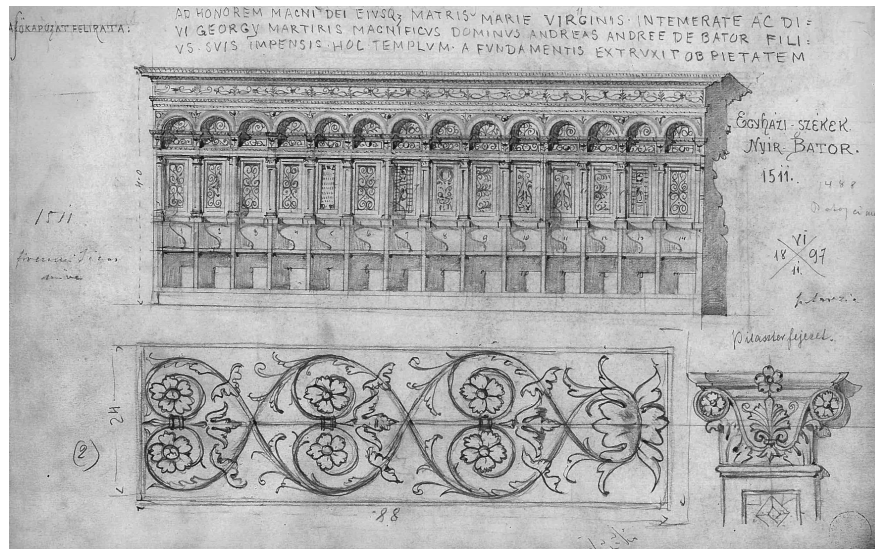 A FŐKAPUZAT FELIRATA:
AD HONOREM MAGNI DEI EIVSQZ MATRIS MARIE VIRGINIS · INTEMERATE AC DI-
VI GEORGY MARTIRIS MAGNIFICVS DOMINVS ANDREAS ANDREE DE BATOR FILI-
VS · SVIS IMPENSIS · HOC TEMPLVM · A FVNDAMENTIS EXTRVXIT OB PIETATEM
EGYHÁZI-SZÉKEK
NYIR BATOR.
1511.
1488
1511
VI
18 97
11.
4·0
2 3 4 5 6 7 8 9 10 11 12 13 14
Pilaszter fejezet.
24
2
88